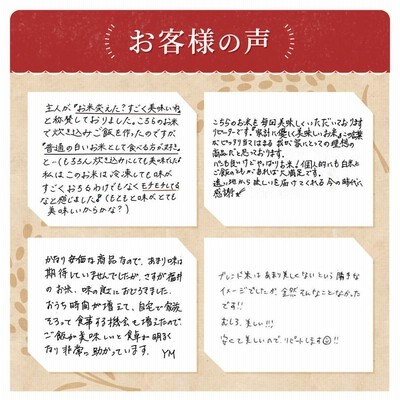 お客様の声
主人が、"お米変えた？すごく美味いね"
と称賛しておりました。こちらのお米
で炊き込みご飯を作ったのですが、
"普通の白いお米として食べる方が好き"
と…(もちろん炊き込みにしても美味だよ)
私はこのお米は冷凍しても味が
すごくおちるわけでもなくモチモチしてる
なと感じました！(もともと味がとても
美味しいからかな？)
こちらのお米を毎回美味しくいただいております
リピーターです。"家計に優しく美味しいお米"この言葉
がピッタリ当てはまる我が家にとっての理想の
商品だと思っております。
パンも良いけどやっぱりお米！個人的にも白米と
ご飯のものがあれば大満足です。
遠い地から欲しいを届けてくれる今の時代に
感謝
かなり安価な商品なので、あまり味は
期待していませんでしたが、さすが福井
のお米、味の良さにおどろきました。
おうち時間が増えて、自宅で家族
そろって食事する機会も増えたので、
ご飯が美味しいと食卓が明るく
なり非常に助かっています。 YM
ブレンド米はあまり美しくないという勝手な
イメージでしたが、全然そんなことなかった
です!!
むしろ、美しい!!!
安くて美しいので、リピートします!!